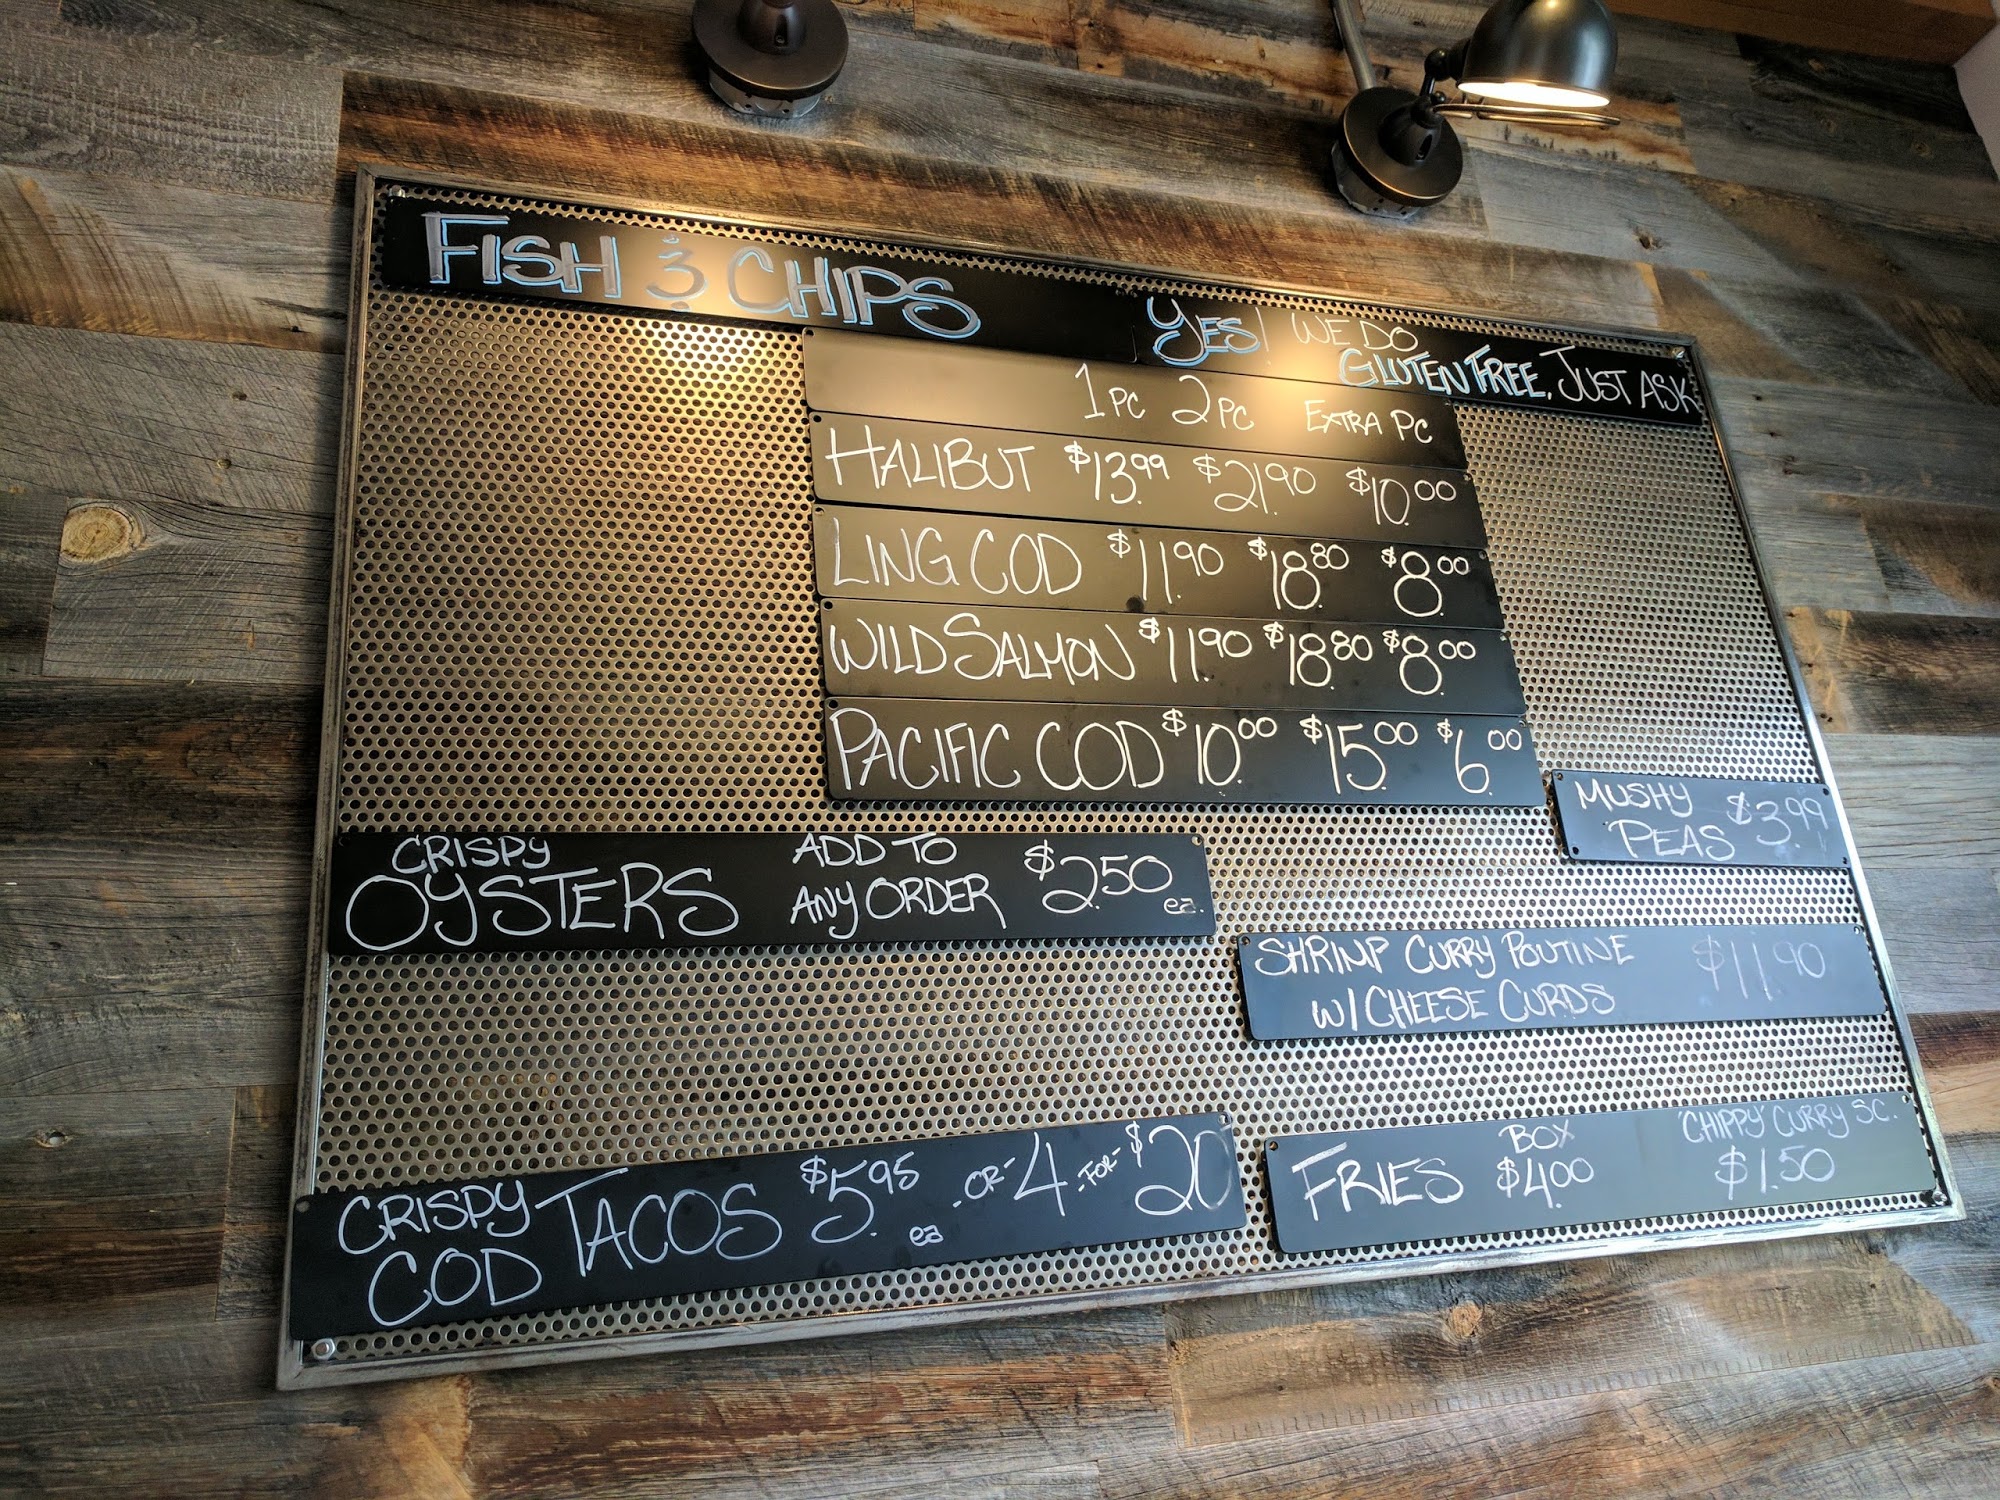 FISH & CHIPS
YES! WE DO
GLUTEN FREE. JUST ASK
1 PC 2 PC EXTRA PC
HALIBUT $13.99 $21.90 $10.00
LING COD $11.90 $18.80 $8.00
WILD SALMON $11.90 $18.80 $8.00
PACIFIC COD $10.00 $15.00 $6.00
MUSHY
PEAS $3.99
CRISPY
OYSTERS
ADD TO
ANY ORDER
$2.50 ea.
SHRIMP CURRY POUTINE
W/ CHEESE CURDS
$11.90
CRISPY
COD
TACOS $5.95 ea -OR- 4 -FOR- $20
FRIES
BOX
$4.00
'CHIPPY' CURRY SC.
$1.50